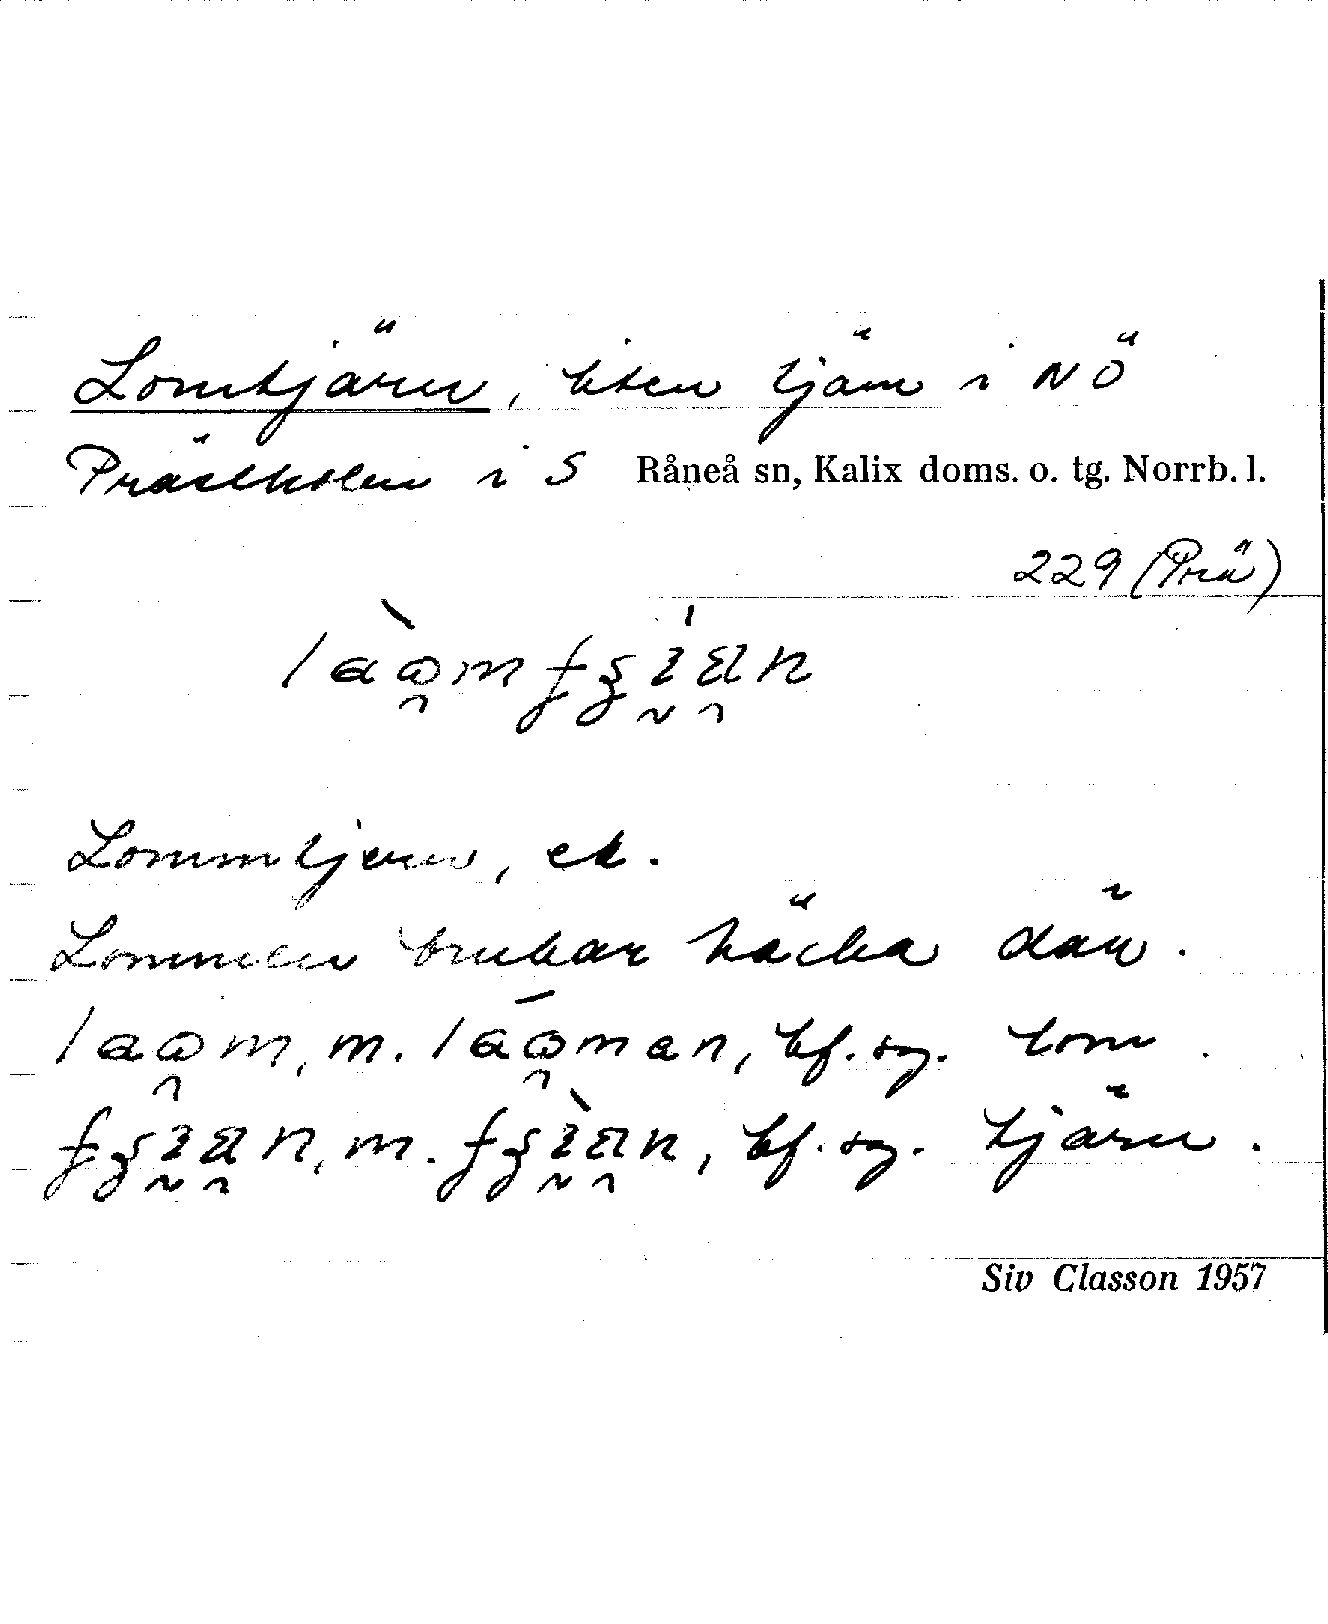 Lomtjärn, liten tjärn i NÖ
Prästholm i S Råneå sn, Kalix doms. o. tg. Norrb. l.
229 (Prä)
Lommtjern, ek.
Lommen brukar häcka där.
m. bf. sg. lom
m. bf. sg. tjärn.
Siv Classon 1957